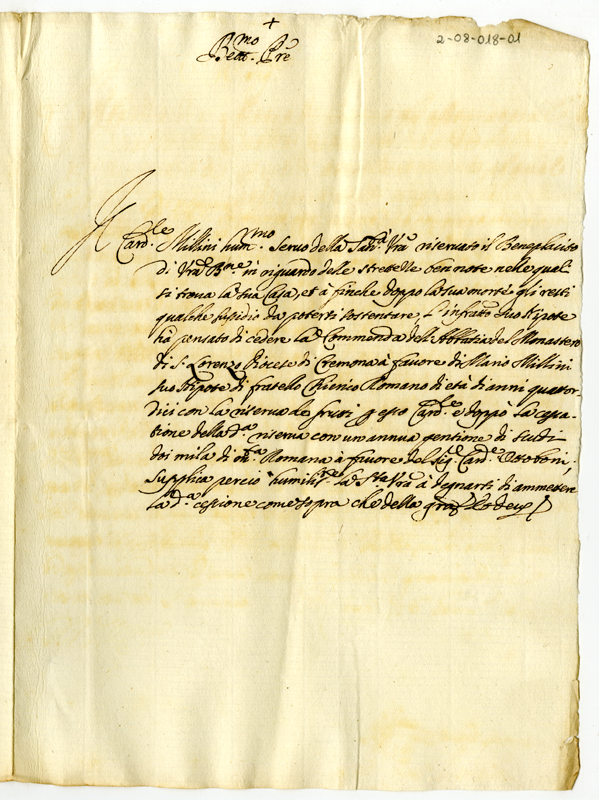 2-08-018-01
+
Beat.mo Pre
Il
Card.le Millini hum.mo Servo della San.tà Vra riservato il Beneplacito
di Vra B.ne in riguardo delle strettezze ben note nelle quali
si trova la sua Casa, et à finche doppo la sua morte gli resti
qualche susidio da potersi sostentare, l'infratto suo Nipote
hà pensato di cedere la Commenda dell'Abbatia del Monastero
di S. Lorenzo Diocese di Cremona à favore di Mario Millini
suo Nipote di fratello Chierico Romano di età di anni quattor-
dici con la riserva de frutti p esso Card.le e doppò la cessa-
tione della d.a riserva con un annua pentione di scudi
doi mila di m.ta Romana à favore del Sig.e Card.e Ottoboni;
Supplica perciò humilis.te la S.tà Vra à degnarsi di ammettere
la d.a cessione come sopra che della graz